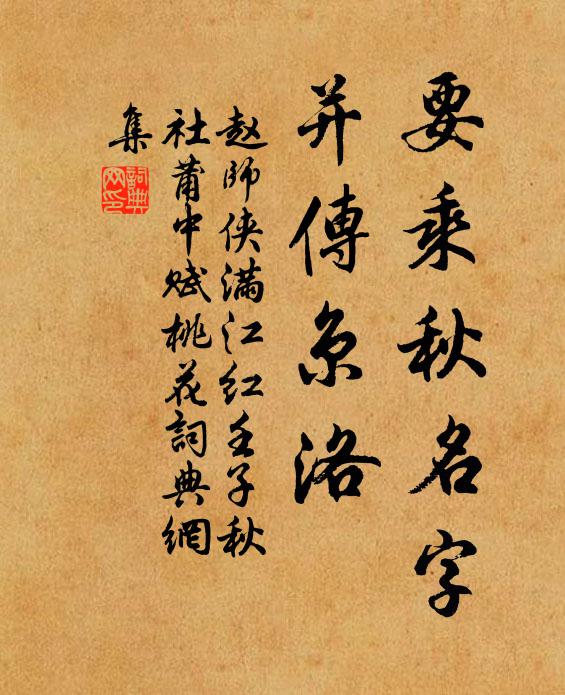 要乘秋名字
并傳京洛
赵師侠满江红壬子秋
社莆中赋桃花詞典網
集
詞典
网印